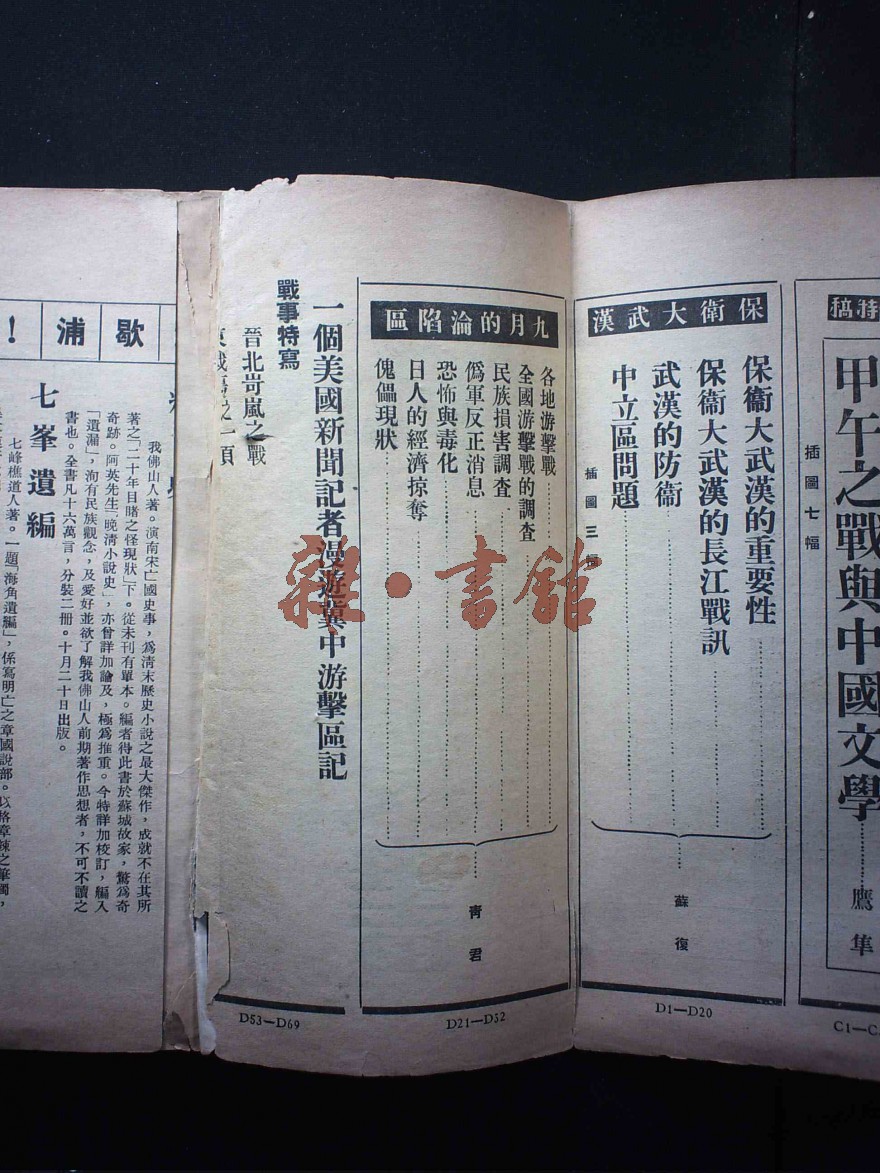 特稿
甲午之戰與中國文學
鷹隼
插圖七幅
C1—C
保衛大武漢
保衞大武漢的重要性
保衞大武漢的長江戰訊
武漢的防衞
中立區問題
插圖三幅
蘇復
D1—D20
九月的淪陷區
各地游擊戰
全國游擊戰的調查
民族損害調查
僞軍反正消息
恐怖與毒化
日人的經濟掠奪
傀儡現狀
青君
D21—D52
一個美國新聞記者漫遊冀中游擊區記
戰事特寫
晉北岢嵐之戰
D53—D69
雜·書館
歇浦
！
我佛山人著。演南宋亡國史事，爲清末歷史小說之最大傑作，成就不在其所
著之「二十年目睹之怪現狀」下。從未刊有單本。編者得此書於蘇城故家，驚爲奇
奇跡。阿英先生「晚清小說史」，亦曾詳加論及，極爲推重。今特詳加校訂，編入
「遺漏」，洵有民族觀念，及愛好並欲了解我佛山人前期著作思想者，不可不讀之
書也。全書凡十六萬言，分裝二册。十月二十日出版。
七峯遺編
七峰樵道人著。一題「海角遺編」，係寫明亡之章國說部。以格章辣之筆觸，